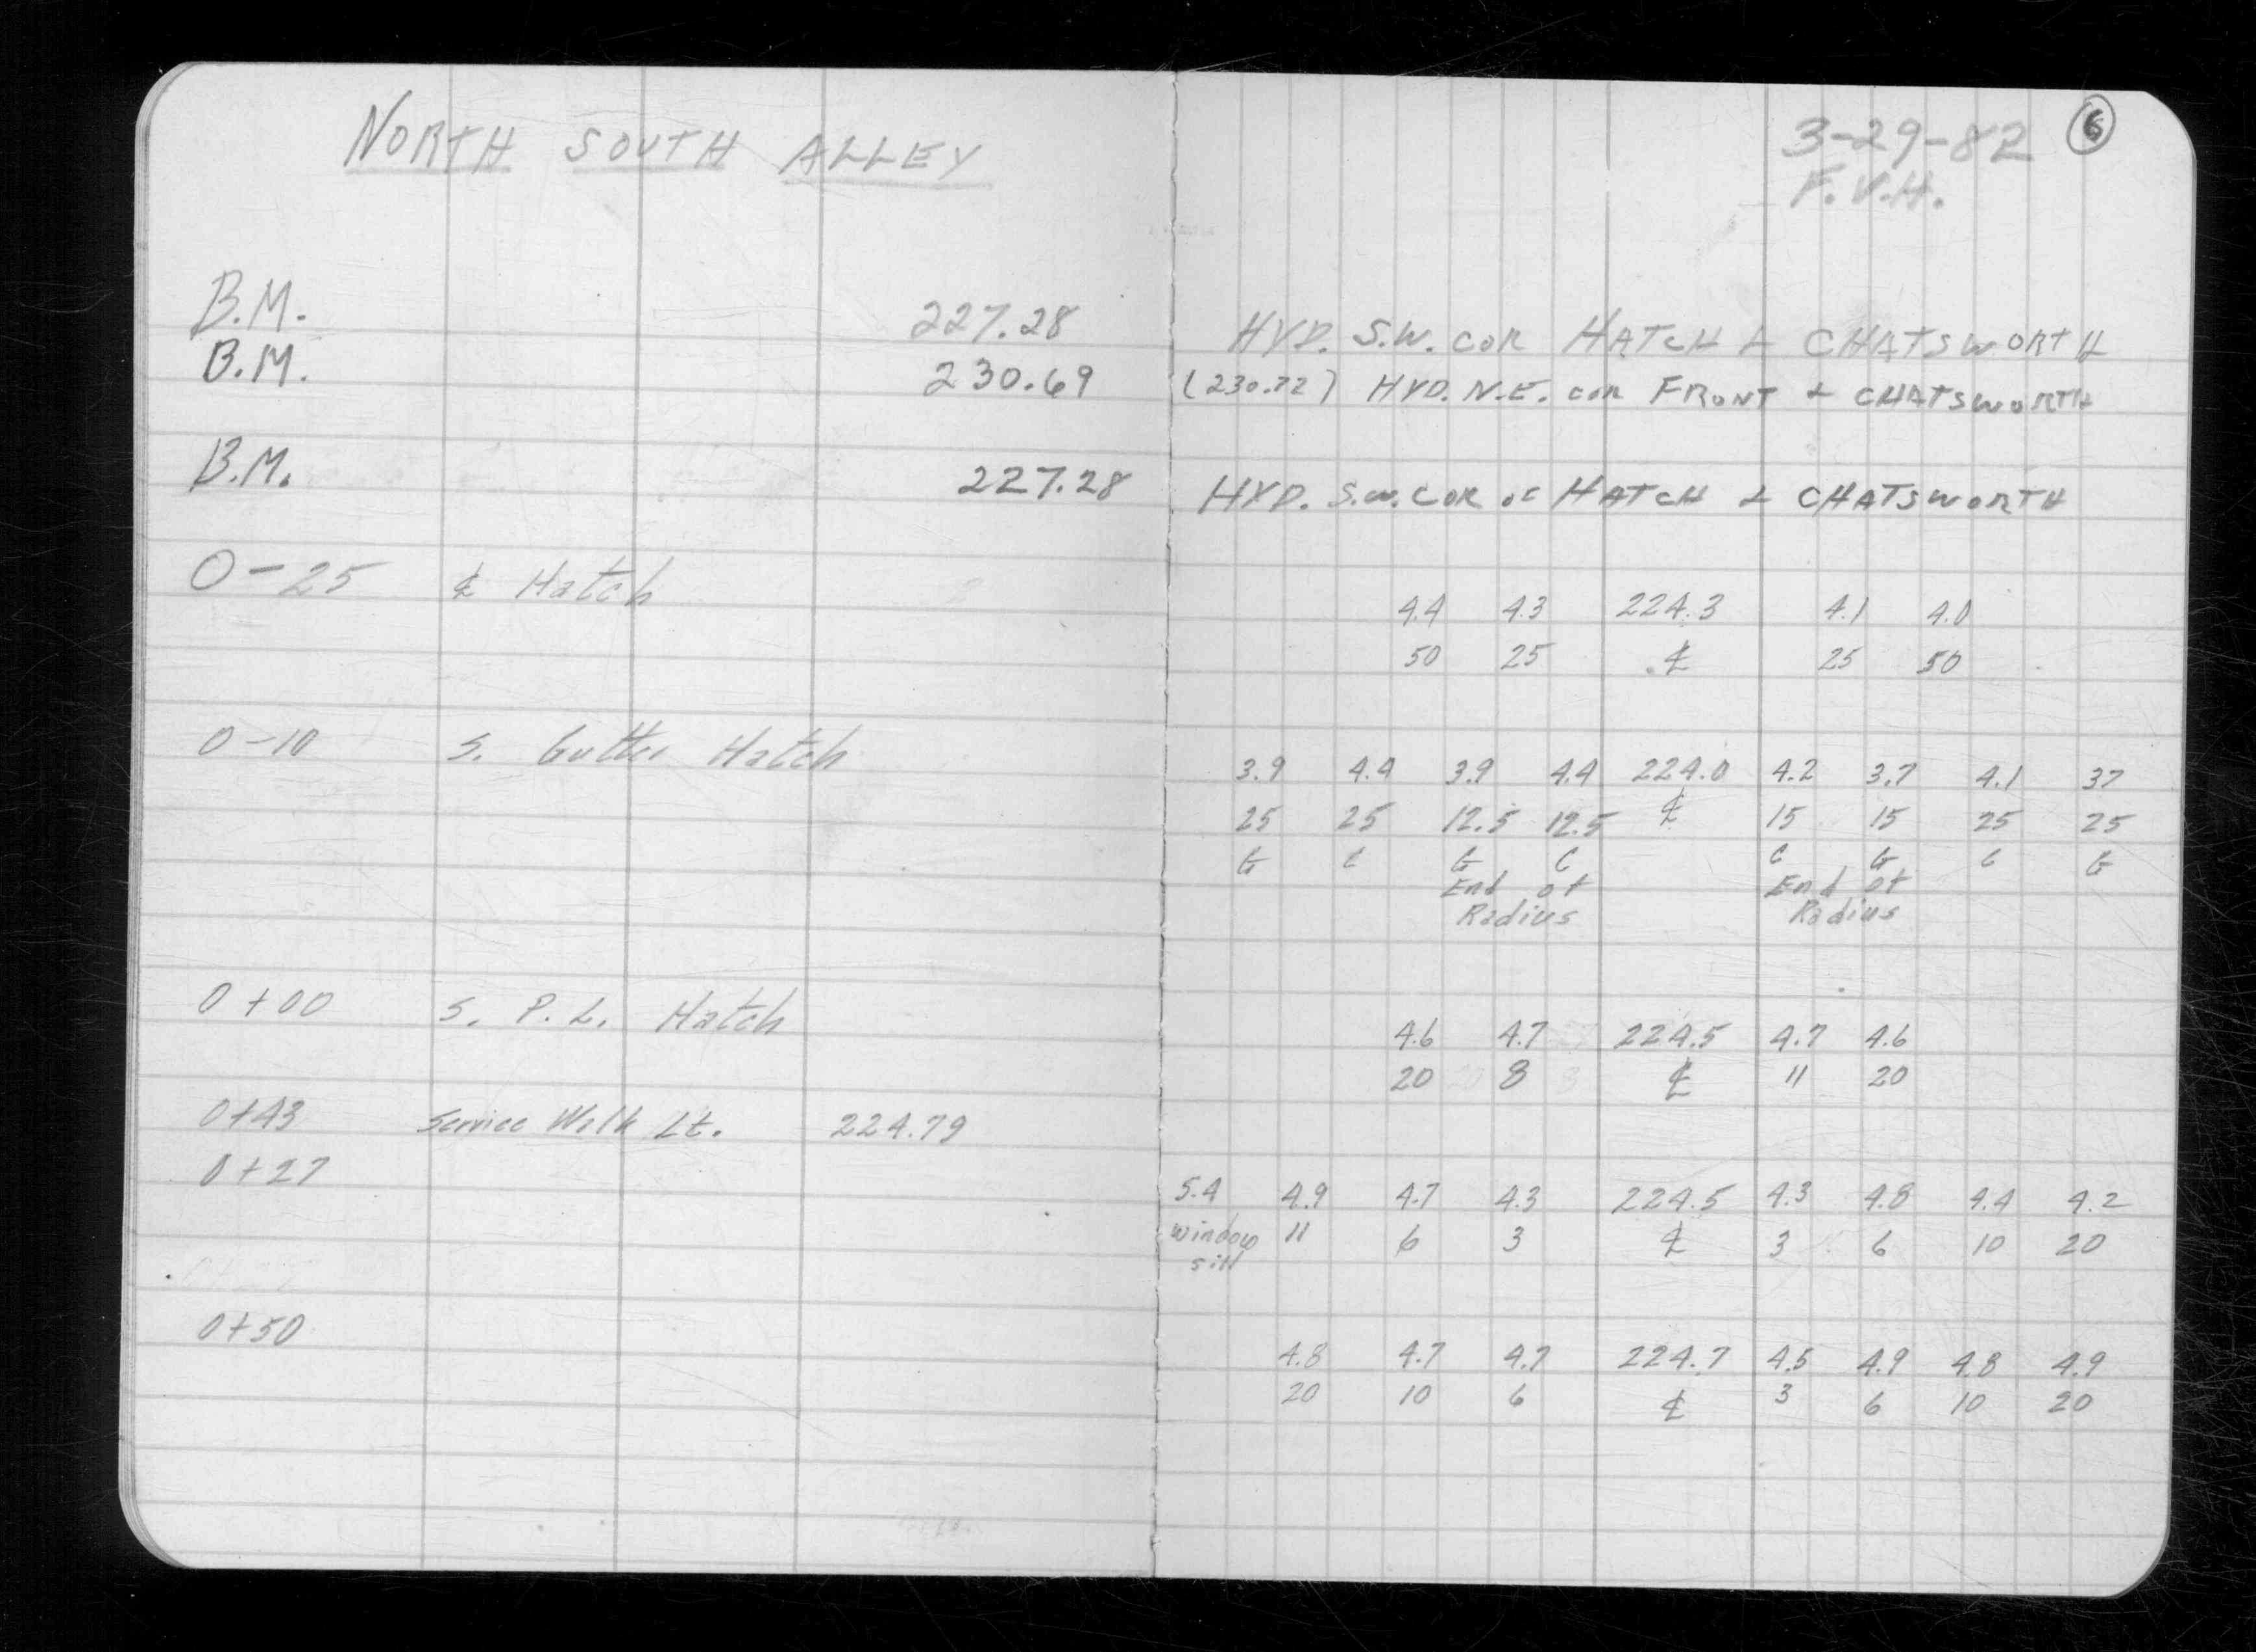 NORTH SOUTH ALLEY
3-29-82 6
F.V.H.
B.M. 227.28 HYD. S.W. COR HATCH + CHATSWORTH
B.M. 230.69 (230.72) HYD. N.E. COR FRONT + CHATSWORTH
B.M. 227.28 HYD. S.W. COR OF HATCH + CHATSWORTH
0-25 ℄ Hatch
4.4 4.3 224.3 4.1 4.0
50 25 ℄ 25 50
0-10 S. Gutter Hatch
3.9 4.4 3.9 4.4 224.0 4.2 3.7 4.1 37
25 25 12.5 12.5 ℄ 15 15 25 25
G C G C C G C G
End of End of
Radius Radius
0+00 S. P.L. Hatch
4.6 4.7 224.5 4.7 4.6
20 8 ℄ 11 20
0+43 Service Walk Lt. 224.79
0+27
5.4 4.9 4.7 4.3 224.5 4.3 4.8 4.4 4.2
window 11 6 3 ℄ 3 6 10 20
sill
0+50
4.8 4.7 4.7 224.7 4.5 4.9 4.8 4.9
20 10 6 ℄ 3 6 10 20